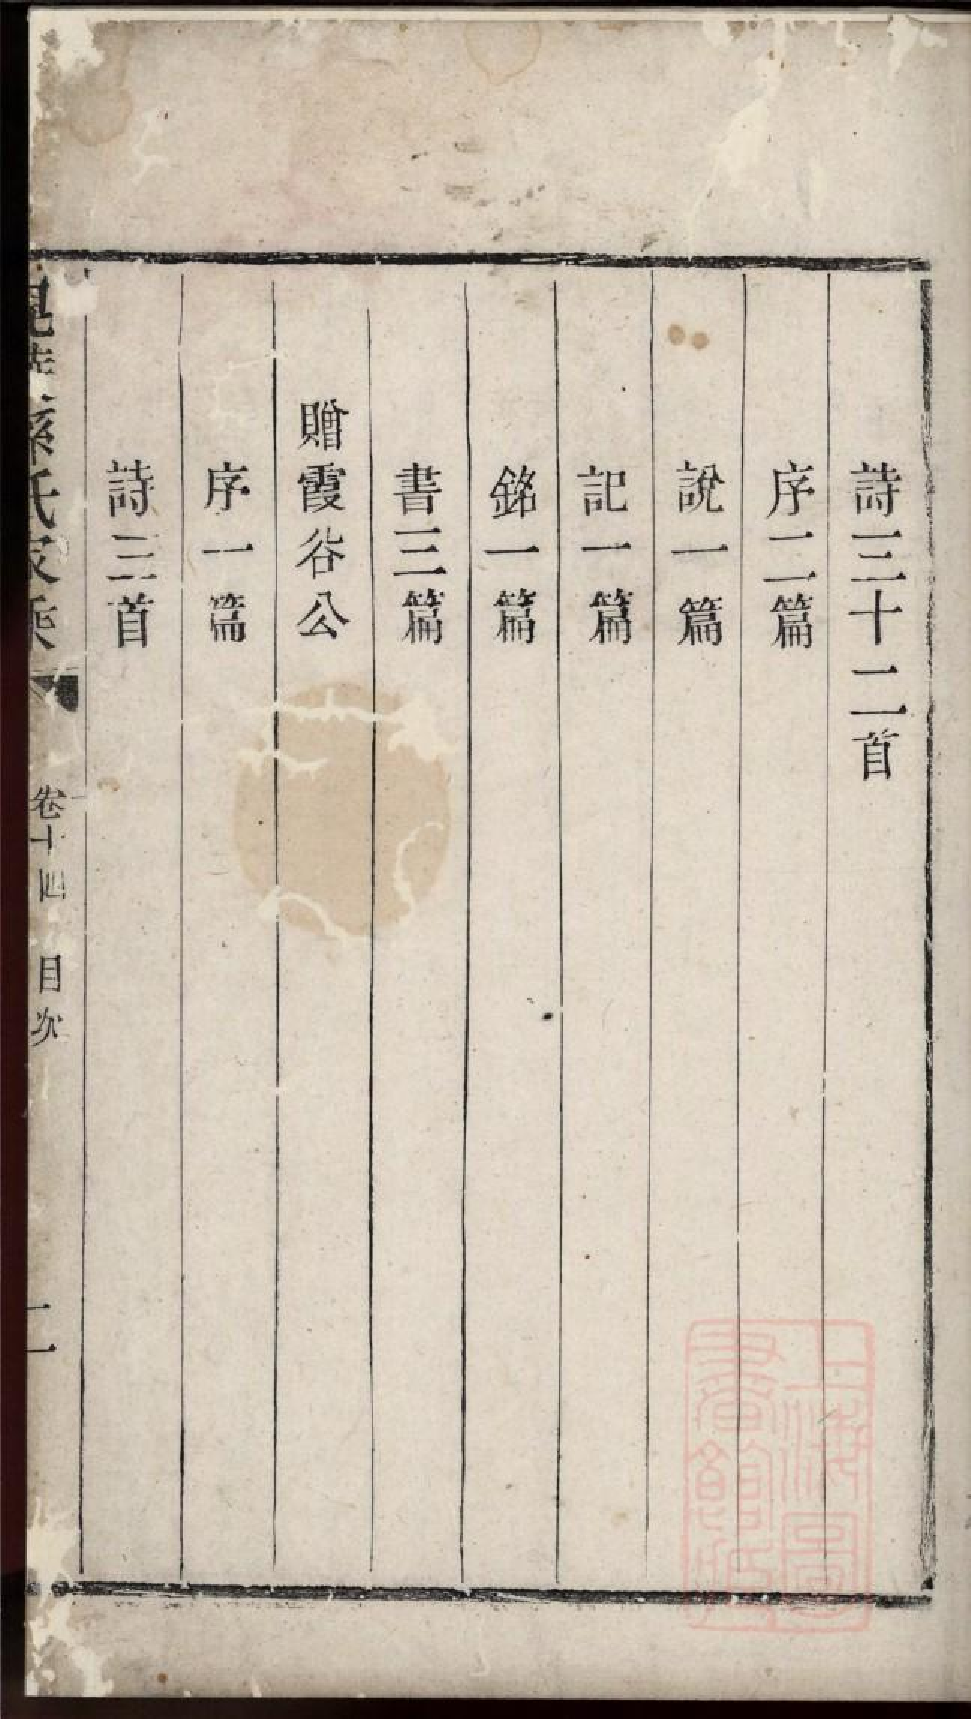 詩三十二首
序二篇
說一篇
記一篇
銘一篇
書三篇
贈霞谷公
序一篇
詩三首
孫氏家乘
卷十四
目次
二
上海圖書館藏